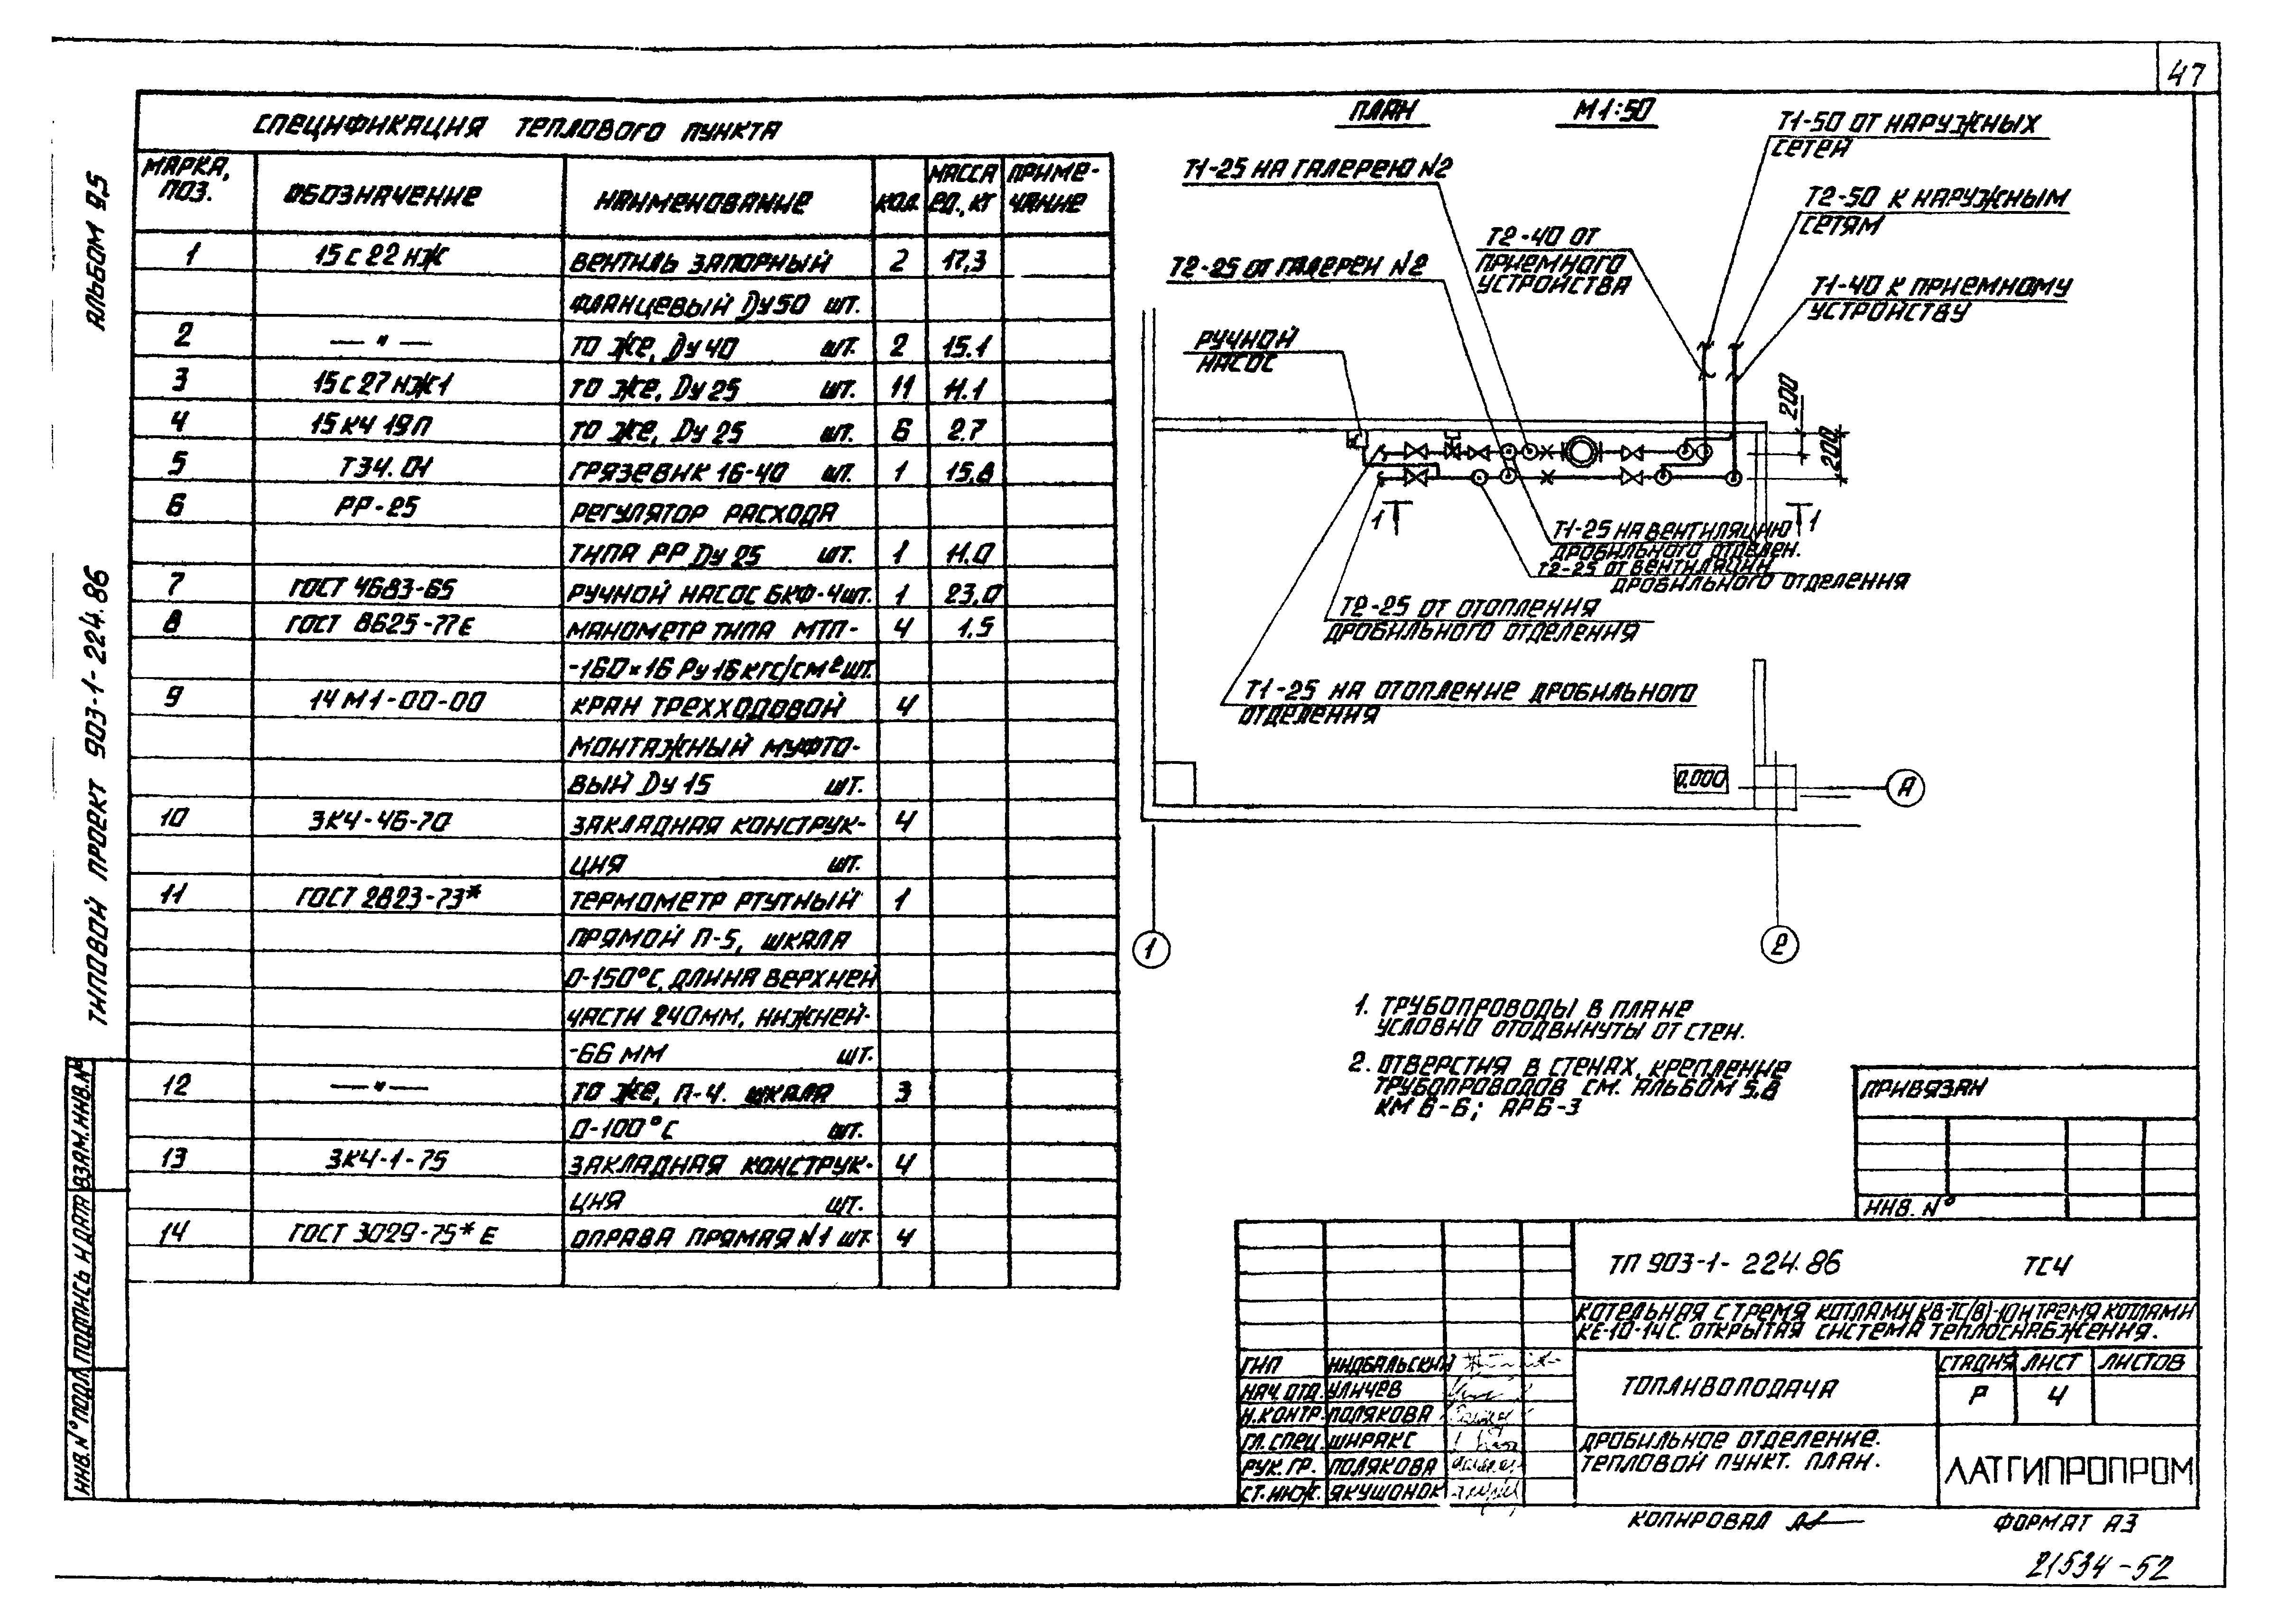 47
АЛЬБОМ 9,5
ТИПОВОЙ ПРОЕКТ 903-1-224.86
СПЕЦИФИКАЦИЯ ТЕПЛОВОГО ПУНКТА
МАРКА, ПОЗ. ОБОЗНАЧЕНИЕ НАИМЕНОВАНИЕ КОЛ. МАССА ЕД., КГ ПРИМЕ- ЧАНИЕ
1 15 с 22 нж ВЕНТИЛЬ ЗАПОРНЫЙ 2 17,3
ФЛАНЦЕВЫЙ Dу50 шт.
2 — " — ТО ЖЕ, Dу 40 шт. 2 15.1
3 15 с 27 нж1 ТО ЖЕ, Dу 25 шт. 11 11.1
4 15 КЧ 19П ТО ЖЕ, Dу 25 шт. 6 2.7
5 Т34.01 ГРЯЗЕВИК 16-40 шт. 1 15,8
6 РР-25 РЕГУЛЯТОР РАСХОДА
ТИПА РР Dу 25 шт. 1 11.0
7 ГОСТ 4683-65 РУЧНОЙ НАСОС БКФ-4 шт. 1 23,0
8 ГОСТ 8625-77Е МАНОМЕТР ТИПА МТП- 4 1,5
-160×16 Ру 16 кгс/см² шт.
9 14 М1-00-00 КРАН ТРЕХХОДОВОЙ 4
МОНТАЖНЫЙ МУФТО-
ВЫЙ Dу 15 шт.
10 ЗК4-46-70 ЗАКЛАДНАЯ КОНСТРУК- 4
ЦИЯ шт.
11 ГОСТ 2823-73* ТЕРМОМЕТР РТУТНЫЙ 1
ПРЯМОЙ П-5, ШКАЛА
0-150°С, ДЛИНА ВЕРХНЕЙ
ЧАСТИ 240мм, НИЖНЕЙ-
-66 мм шт.
12 — " — ТО ЖЕ, П-4. ШКАЛА 3
0-100°С шт.
13 ЗК4-1-75 ЗАКЛАДНАЯ КОНСТРУК- 4
ЦИЯ шт.
14 ГОСТ 3029-75* Е ОПРАВА ПРЯМАЯ N1 шт 4
ПЛАН М1:50
Т1-50 ОТ НАРУЖНЫХ
СЕТЕЙ
Т1-25 НА ГАЛЕРЕЮ N2
Т2-50 К НАРУЖНЫМ
СЕТЯМ
Т2-40 ОТ
ПРИЕМНОГО
УСТРОЙСТВА
Т2-25 ОТ ГАЛЕРЕИ N2
Т1-40 К ПРИЕМНОМУ
УСТРОЙСТВУ
РУЧНОЙ
НАСОС
200
200
1 1
Т1-25 НА ВЕНТИЛЯЦИЮ
ДРОБИЛЬНОГО ОТДЕЛЕН.
Т2-25 ОТ ВЕНТИЛЯЦИИ
ДРОБИЛЬНОГО ОТДЕЛЕНИЯ
Т2-25 ОТ ОТОПЛЕНИЯ
ДРОБИЛЬНОГО ОТДЕЛЕНИЯ
Т1-25 НА ОТОПЛЕНИЕ ДРОБИЛЬНОГО
ОТДЕЛЕНИЯ
0,000
А
1
2
1. ТРУБОПРОВОДЫ В ПЛАНЕ
УСЛОВНО ОТОДВИНУТЫ ОТ СТЕН.
2. ОТВЕРСТИЯ В СТЕНАХ, КРЕПЛЕНИЕ
ТРУБОПРОВОДОВ СМ. АЛЬБОМ 5,8
КМ 6-6; АР6-3
ПРИВЯЗАН
ИНВ. N°
ТП 903-1-224.86 ТС4
КОТЕЛЬНАЯ С ТРЕМЯ КОТЛАМИ КВ-ТС(В)-10 И ТРЕМЯ КОТЛАМИ
КЕ-10-14С. ОТКРЫТАЯ СИСТЕМА ТЕПЛОСНАБЖЕНИЯ.
ГИП НИДБАЛЬСКИЙ
НАЧ. ОТД. УЛИЧЕВ
Н.КОНТР. ПОЛЯКОВА
ГЛ. СПЕЦ. ШИРАКС
РУК. ГР. ПОЛЯКОВА
СТ. ИНЖ. ЯКУШОНОК
ТОПЛИВОПОДАЧА
СТАДИЯ ЛИСТ ЛИСТОВ
Р 4
ДРОБИЛЬНОЕ ОТДЕЛЕНИЕ.
ТЕПЛОВОЙ ПУНКТ. ПЛАН.
ЛАТГИПРОПРОМ
КОПИРОВАЛ
ФОРМАТ А3
21534-52
ВЗАМ. ИНВ. N°
ПОДПИСЬ И ДАТА
ИНВ. N° ПОДЛ